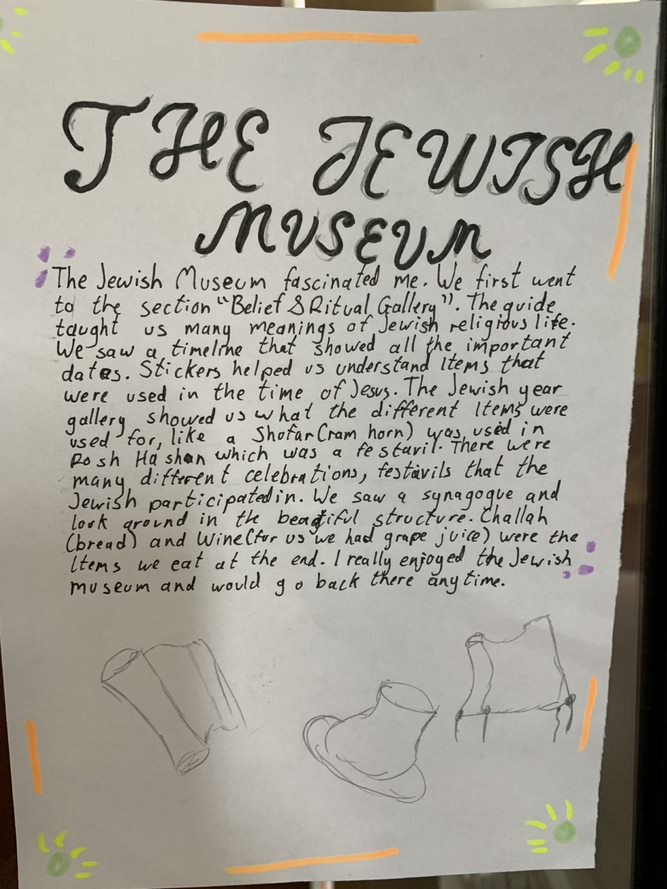 THE JEWISH
MUSEUM
The Jewish Museum fascinated me. We first went
to the section "Belief & Ritual Gallery". The guide
taught us many meanings of Jewish religious life.
We saw a timeline that showed all the important
dates. Stickers helped us understand Items that
were used in the time of Jesus. The Jewish year
gallery showed us what the different Items were
used for, like a Shofar(ram horn) was used in
Rosh Hashan which was a festavil. There were
many different celebrations, festavils that the
Jewish participated in. We saw a synagogue and
look around in the beautiful structure. Challah
(bread) and Wine(for us we had grape juice) were the
Items we eat at the end. I really enjoyed the Jewish
museum and would go back there anytime.